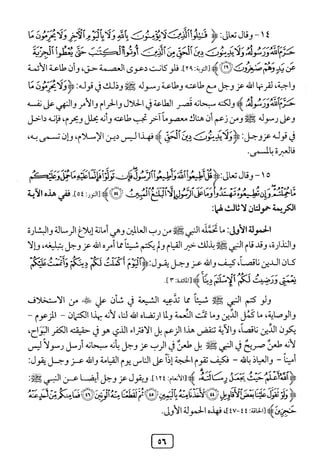 ١٤ - وقال تعالى: ﴿ قَٰتِلُوا۟ ٱلَّذِينَ لَا يُؤْمِنُونَ بِٱللَّهِ وَلَا بِٱلْيَوْمِ ٱلْـَٔاخِرِ وَلَا يُحَرِّمُونَ مَا
حَرَّمَ ٱللَّهُ وَرَسُولُهُۥ وَلَا يَدِينُونَ دِينَ ٱلْحَقِّ مِنَ ٱلَّذِينَ أُوتُوا۟ ٱلْكِتَٰبَ حَتَّىٰ يُعْطُوا۟ ٱلْجِزْيَةَ
عَن يَدٍ وَهُمْ صَٰغِرُونَ ﴿٢٩﴾ ﴾ [التوبة: ٢٩]. فلو كانت دعوى العصمة حق، وأن طاعة الأئمة
واجبة، لقرنها الله عز وجل مع طاعته وطاعة رسوله ﷺ وذلك في قوله: ﴿ وَلَا يُحَرِّمُونَ مَا
حَرَّمَ ٱللَّهُ وَرَسُولُهُۥ ﴾ ولكنه سبحانه قصر الطاعة في الحلال والحرام والأمر والنهي على نفسه
وعلى رسوله ﷺ ومن زعم أن هناك معصوماً آخر تجب طاعته وأنه يحلل ويحرم، فإنه داخل
في قوله عز وجل: ﴿ وَلَا يَدِينُونَ دِينَ ٱلْحَقِّ ﴾ فهذا ليس دين الإسلام، وإن تسمى به،
فالعبرة بالمسمى.
١٥ - وقال تعالى: ﴿ قُلْ أَطِيعُوا۟ ٱللَّهَ وَأَطِيعُوا۟ ٱلرَّسُولَ فَإِن تَوَلَّوْا۟ فَإِنَّمَا عَلَيْهِ مَا حُمِّلَ وَعَلَيْكُم
مَّا حُمِّلْتُمْ وَإِن تُطِيعُوهُ تَهْتَدُوا۟ وَمَا عَلَى ٱلرَّسُولِ إِلَّا ٱلْبَلَٰغُ ٱلْمُبِينُ ﴿٥٤﴾ ﴾ [النور: ٥٤]. ففي هذه الآية
الكريمة حمولتان لا ثالث لهما:
الحمولة الأولى: ما تحمَّله النبي ﷺ من رب العالمين وهي أمانة إبلاغ الرسالة والبشارة
والنذارة، وقد قام النبي ﷺ بذلك خير القيام ولم يكتم شيئاً مما أمره الله عز وجل بتبليغه، وإلا
كان الدين ناقصاً، كيف والله عز وجل يقول: ﴿ ٱلْيَوْمَ أَكْمَلْتُ لَكُمْ دِينَكُمْ وَأَتْمَمْتُ عَلَيْكُمْ
نِعْمَتِى وَرَضِيتُ لَكُمُ ٱلْإِسْلَٰمَ دِينًا ﴾ [المائدة: ٣].
ولو كتم النبي ﷺ شيئاً مما تدعيه الشيعة في شأن علي من الاستخلاف
والوصاية، ما كَمُل الدين وما تمت النعمة ولما ارتضاه الله لنا، لأنه بهذا الكتمان - المزعوم -
يكون الدين ناقصاً، والآية تنقض هذا الزعم بل الافتراء الذي هو في حقيقته الكفر البَواح،
لأنه طعن صريح في النبي ﷺ بل طعن في الرب عز وجل بأنه سبحانه أرسل رسولاً ليس
أميناً - والعياذ بالله - فكيف تقوم الحجة إذاً على الناس يوم القيامة والله عز وجل يقول:
﴿ ٱللَّهُ أَعْلَمُ حَيْثُ يَجْعَلُ رِسَالَتَهُۥ ﴾ [الأنعام: ١٢٤]. ويقول عز وجل أيضاً عن النبي ﷺ:
﴿ وَلَوْ تَقَوَّلَ عَلَيْنَا بَعْضَ ٱلْأَقَاوِيلِ ﴿٤٤﴾ لَأَخَذْنَا مِنْهُ بِٱلْيَمِينِ ﴿٤٥﴾ ثُمَّ لَقَطَعْنَا مِنْهُ ٱلْوَتِينَ ﴿٤٦﴾ فَمَا مِنكُم مِّنْ أَحَدٍ عَنْهُ
حَٰجِزِينَ ﴾ [الحاقة: ٤٤-٤٧]، فهذه الحمولة الأولى.
٥٦